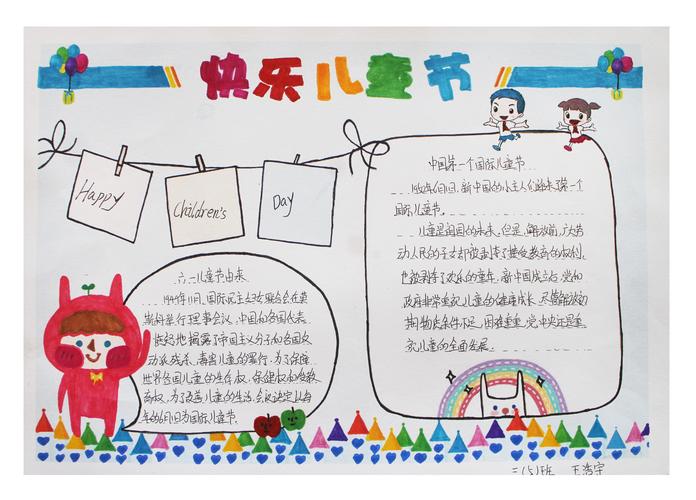 快乐儿童节
Happy
Children's
Day
中国第一个国际儿童节
1950年6月1日,新中国的小主人们迎来了第一个
国际儿童节。
儿童是祖国的未来,但是,解放前,广大劳
动人民的子女却被剥夺了接受教育的权利,
也被剥夺了欢乐的童年。新中国成立后,党和
政府非常重视儿童的健康成长,尽管解放初
期物质条件不足,困难重重,党中央还是重
视儿童的全面发展。
六一儿童节由来
1949年11月,国际民主妇女联合会在莫
斯科举行理事会议,中国和各国代表
愤怒地揭露了帝国主义分子和各国反
动派残杀、毒害儿童的罪行。为了保障
世界各国儿童的生存权、保健权和受教
育权,为了改善儿童的生活,会议决定以每
年的6月1日为国际儿童节。
三(5)班 王浩宇